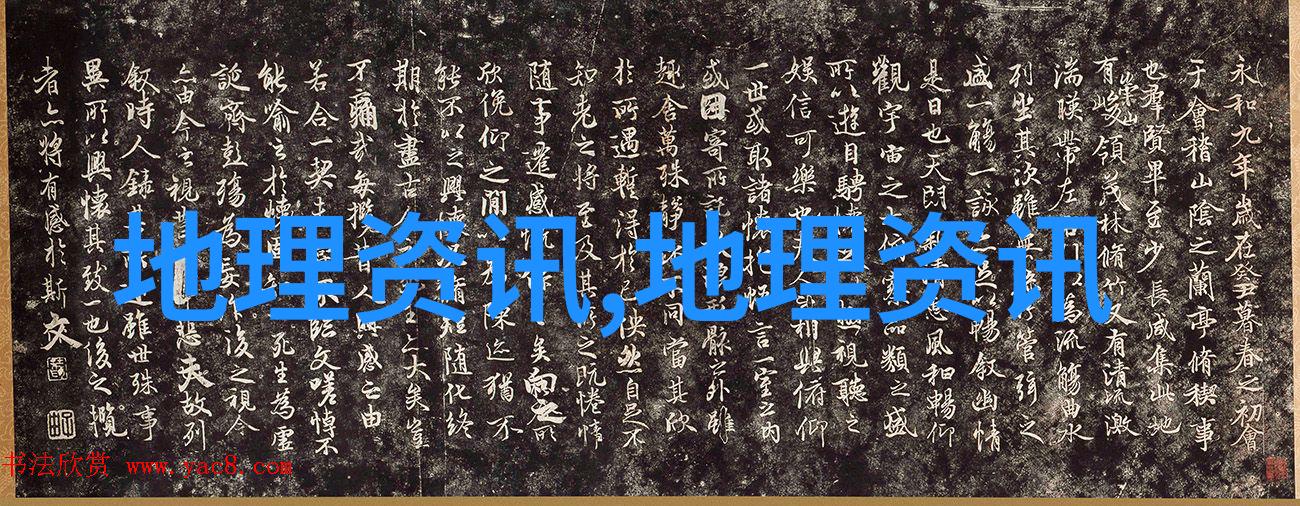 地理资讯,地理资讯
永和九年歲在癸丑暮春之初會
于會稽山陰之蘭亭脩稧事
也羣賢畢至少長咸集此地
有崇山峻領茂林脩竹又有清流激
湍暎帶左右為流觴曲水
列坐其次雖無管弦之
盛一觴一詠足以暢敘幽情
是日也天朗惠風和暢仰
觀宇宙之品類之盛
所以遊目騁懷視聽之
娛信可樂也相與俯仰
一世或取諸懷抱悟言一室之內
或因寄所形骸之外雖
趣舍萬殊靜不同當其欣
於所遇暫得於己怏然自足不
知老之將至及其所之既惓情
隨事遷感矣向之所
欣俛仰之閒陳迹猶不
能不以之興懷脩短隨化終
期於盡古人亦大矣豈
不痛哉每攬昔人興感之由
若合一契臨文嗟悼不
能喻之於懷死生為虛
誕齊彭殤為妄作後之視今
亦由今之視昔悲夫故列
敘時人錄其雖世殊事
異所以興懷其致一也後之攬
者亦將有感於斯文
书法欣赏 www.yac8.com